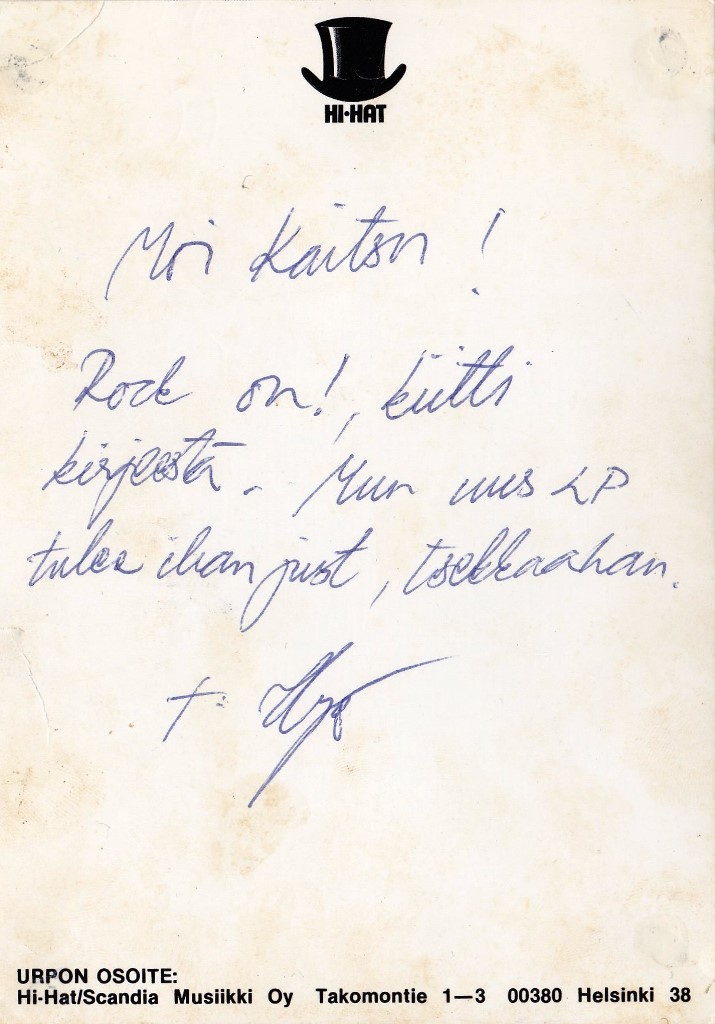 HI-HAT
Moi Kaitsu!
Rock on!, kiitti
kirjeestä. Mun uus LP
tulee ihan just, tsekkaahan.
t:
URPON OSOITE:
Hi-Hat/Scandia Musiikki Oy Takomontie 1—3 00380 Helsinki 38